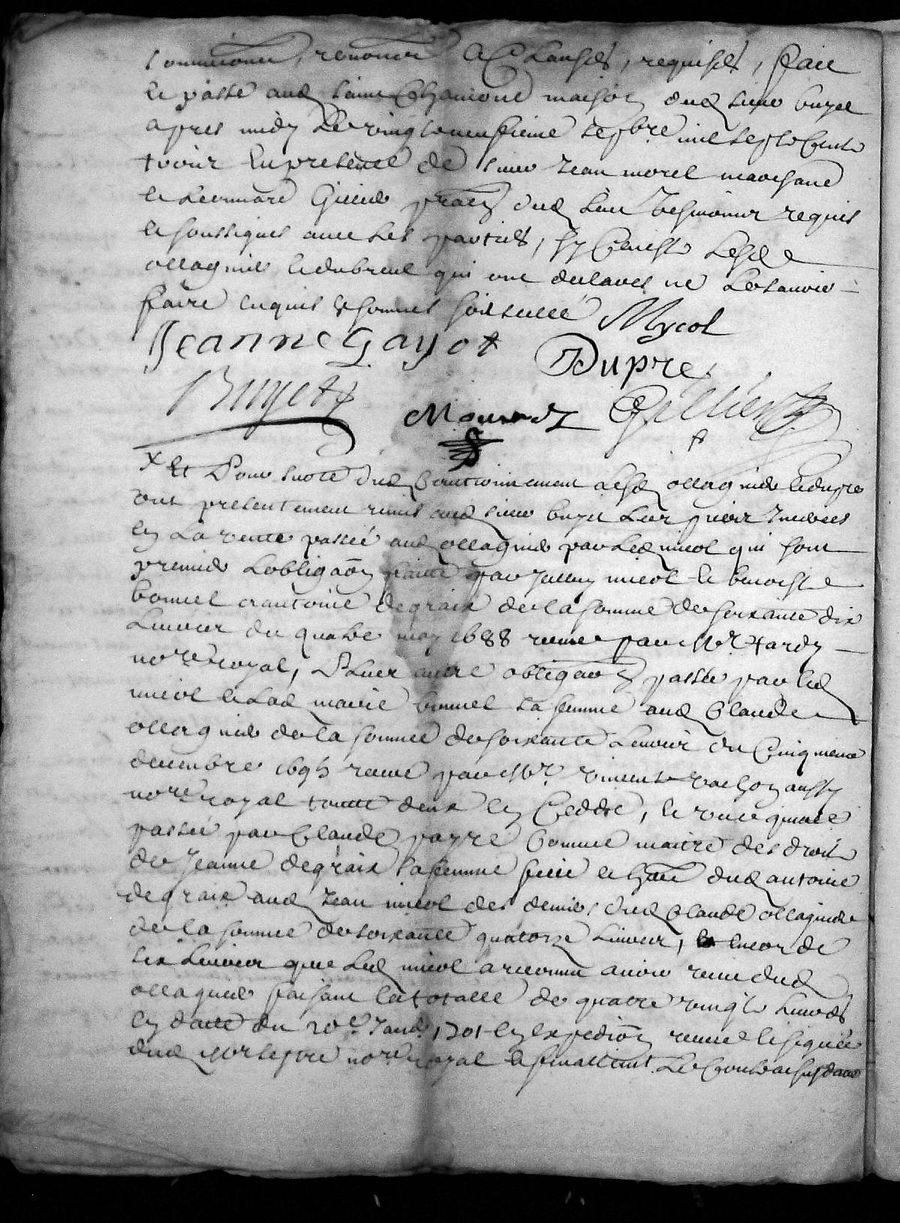 renoncé &c clauses, requises, faict
et passé aud saint Chamond maison dud sieur buyet
apres midy le vingt neufvieme 7bre mil sept cents
trois en presence de sieur Jean morel marchand
et Leonnard Gillier praticien dud lieu tesmoins requis
et soussignes avec les parties, sy ce n'est lesd
ollagnier et dubreul qui ont declarés ne le sçavoir
faire enquis et sommés soit scellé Mycol
Jeanne Gayot
Dupre
Buyet
Gillier
x Et pour suite dud cautionnement lesd ollagnier et dupre
ont presentement remis aud sieur buyet les pieces
en la vente passée aud ollagnier par led micol qui sont
premier l'obligaon faitte par Jullien micol et benoiste
bonnel a antoine degraix de la somme de soixante dix
livres du quatre may 1688 receue par Mr hardy
nore royal, plus autre obligaon passée par led
micol et lad marie bonnel sa femme aud Claude
ollagnier de la somme de soixante livres du cinqme
decembre 1695 receue par Mr vincent vachon aussy
nore royal toutte deux en cedde, et une quitte
passée par Claude payre comme maitre des droits
de Jeanne degraix sa femme fille et here dud antoine
degraix aud Jean micol des deniers dud Claude ollagnier
de la somme de soixante quatorze livres, et encor de
six livres que led micol a reconnu avoir receu dud
ollagnier faisant la totalle de quatre vingts livres
en datte du 20e Janv 1701 en expedion receue et signée
dud Mr nore royal et finallemt le contract